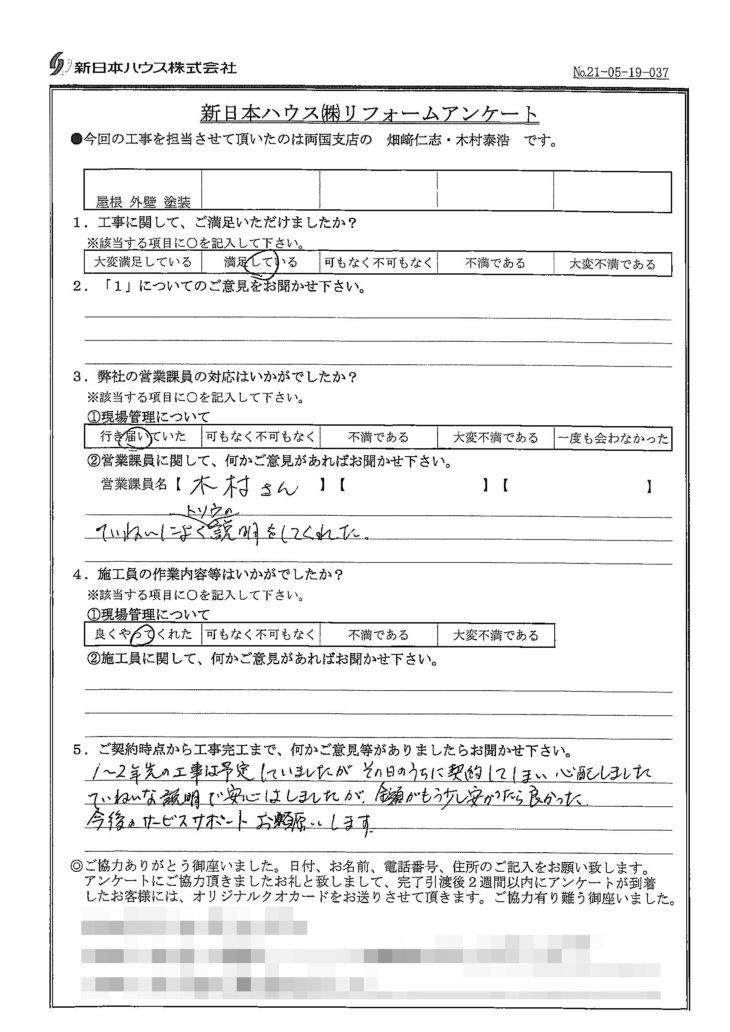 新日本ハウス株式会社
No.21-05-19-037
新日本ハウス㈱リフォームアンケート
●今回の工事を担当させて頂いたのは両国支店の 畑﨑仁志・木村泰浩 です。
屋根 外壁 塗装
1．工事に関して、ご満足いただけましたか？
※該当する項目に○を記入して下さい。
大変満足している 満足している 可もなく不可もなく 不満である 大変不満である
2．「1」についてのご意見をお聞かせ下さい。
3．弊社の営業課員の対応はいかがでしたか？
※該当する項目に○を記入して下さい。
①現場管理について
行き届いていた 可もなく不可もなく 不満である 大変不満である 一度も会わなかった
②営業課員に関して、何かご意見があればお聞かせ下さい。
営業課員名【 木村さん 】【 】【 】
トソウの
ていねいによく説明をしてくれた。
4．施工員の作業内容等はいかがでしたか？
※該当する項目に○を記入して下さい。
①現場管理について
良くやってくれた 可もなく不可もなく 不満である 大変不満である
②施工員に関して、何かご意見があればお聞かせ下さい。
5．ご契約時点から工事完工まで、何かご意見等がありましたらお聞かせ下さい。
1～2年先の工事は予定していましたが その日のうちに契約してしまい心配しました
ていねいな説明で安心はしましたが、金額がもう少し安かったら良かった。
今後のサービスサポート お願いします。
◎ご協力ありがとう御座いました。日付、お名前、電話番号、住所のご記入をお願い致します。
アンケートにご協力頂きましたお礼と致しまして、完了引渡後２週間以内にアンケートが到着
したお客様には、オリジナルクオカードをお送りさせて頂きます。ご協力有り難う御座いました。